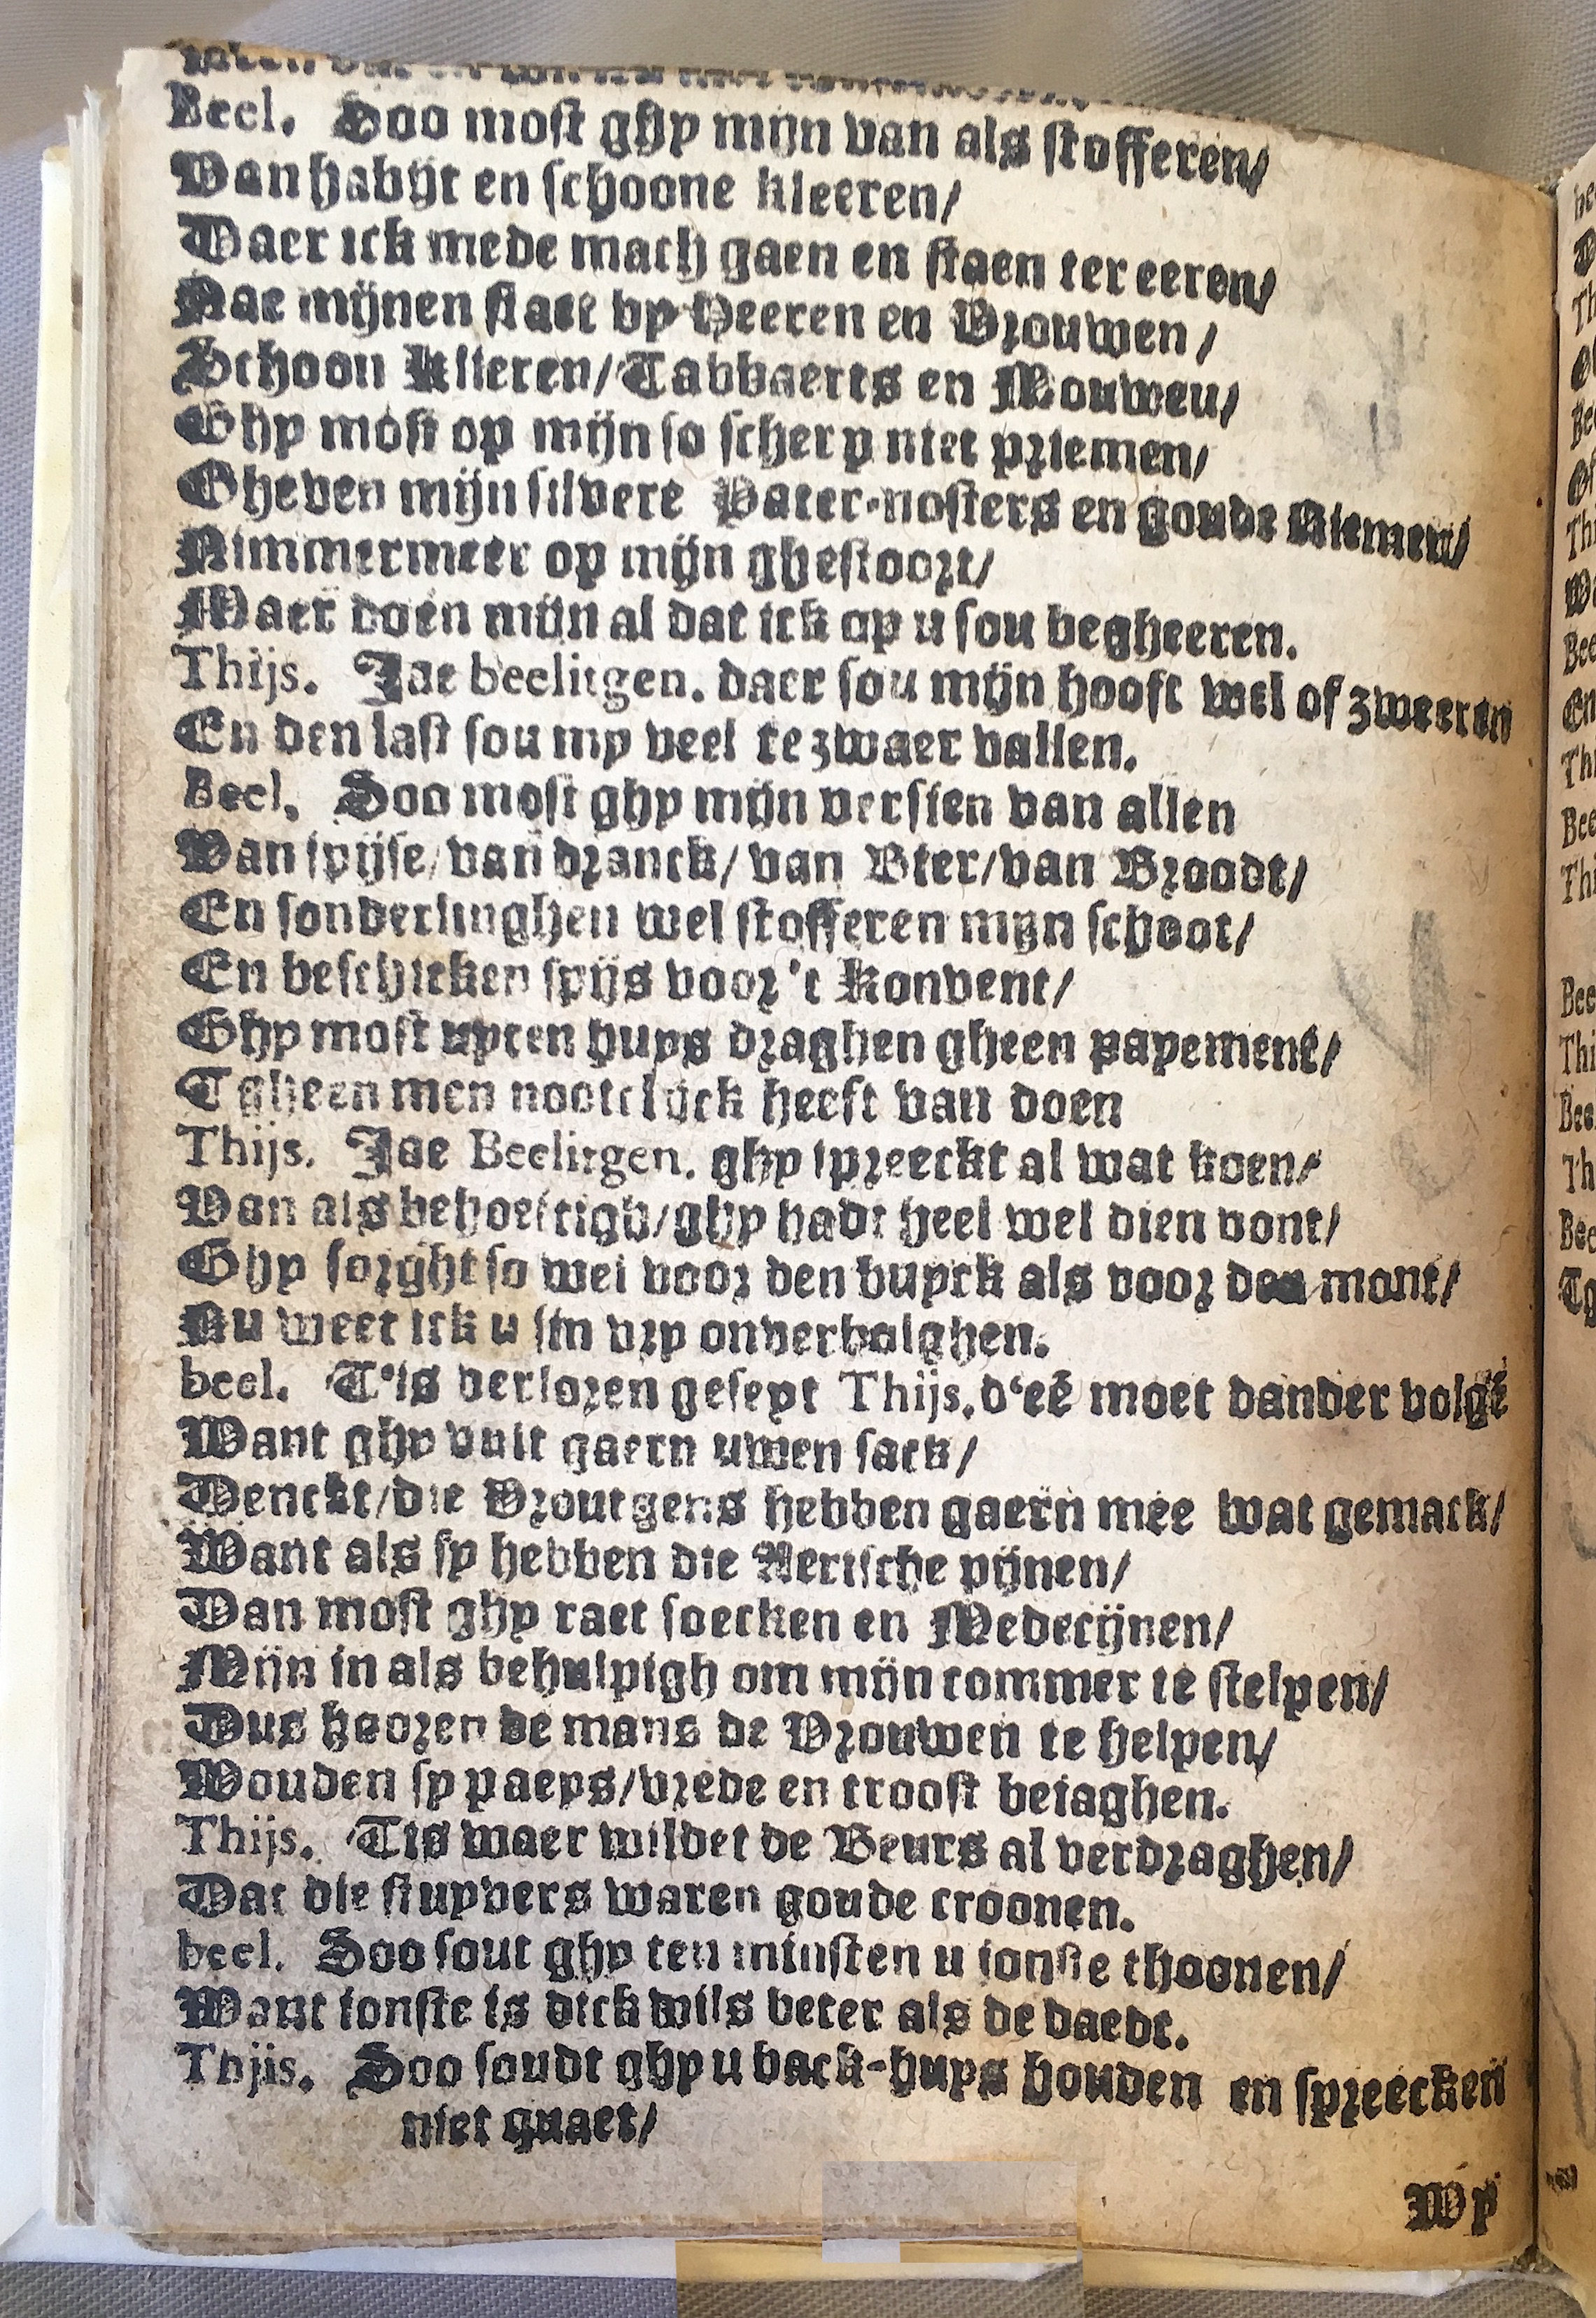 Beel. Soo most ghy mijn van als stofferen/
Van habijt en schoone kleeren/
Daer ick mede mach gaen en staen ter eeren/
Nae mijnen staet by Heeren en Vrouwen/
Schoon Klieren/Tabbaerts en Mouwen/
Ghy most op mijn so scherp niet priemen/
Gheven mijn silvere Pater-nosters en goude Riemen/
Nimmermeer op mijn ghestoort/
Maer doen mijn al dat ick op u sou begheeren.
Thijs. Jae beelitgen. daer sou mijn hooft wel of zweeren
En den last sou my veel te zwaer vallen.
Beel. Soo most ghy mijn versien van allen
Van spijse/van dranck/van Bier/van Broodt/
En sonderlinghen wel stofferen mijn schoot/
En beschicken spijs voor 't Konvent/
Ghy most upten huys draghen gheen payement/
Tgheen men nootelijck heeft van doen
Thijs. Jae Beelitgen. ghy spreeckt al wat koen/
Van als behoeftigh/ghy hadt heel wel dien vont/
Ghy sorght so wel voor den buyck als voor den mont/
Nu weet ick u sin vry onverbolghen.
beel. T'is verloren geseyt Thijs. d'eē moet dander volgē
Want ghy vult gaern uwen sack/
Denckt/die Vroutgens hebben gaern mee wat gemack/
Want als sy hebben die Aertsche pijnen/
Dan most ghy raet soecken en Medecijnen/
Mijn in als behulpigh om mijn commer te stelpen/
Dus hooren de mans de Vrouwen te helpen/
Wouden sy paeys/vrede en troost bejaghen.
Thijs. Tis waer wildet de Beurs al verdraghen/
Dat die stuyvers waren goude croonen.
beel. Soo sout ghy ten minsten u jonste thoonen/
Want jonste is dickwils beter als de daedt.
Thjis. Soo soudt ghy u back-huys houden en spreecken
niet quaet/
Wy